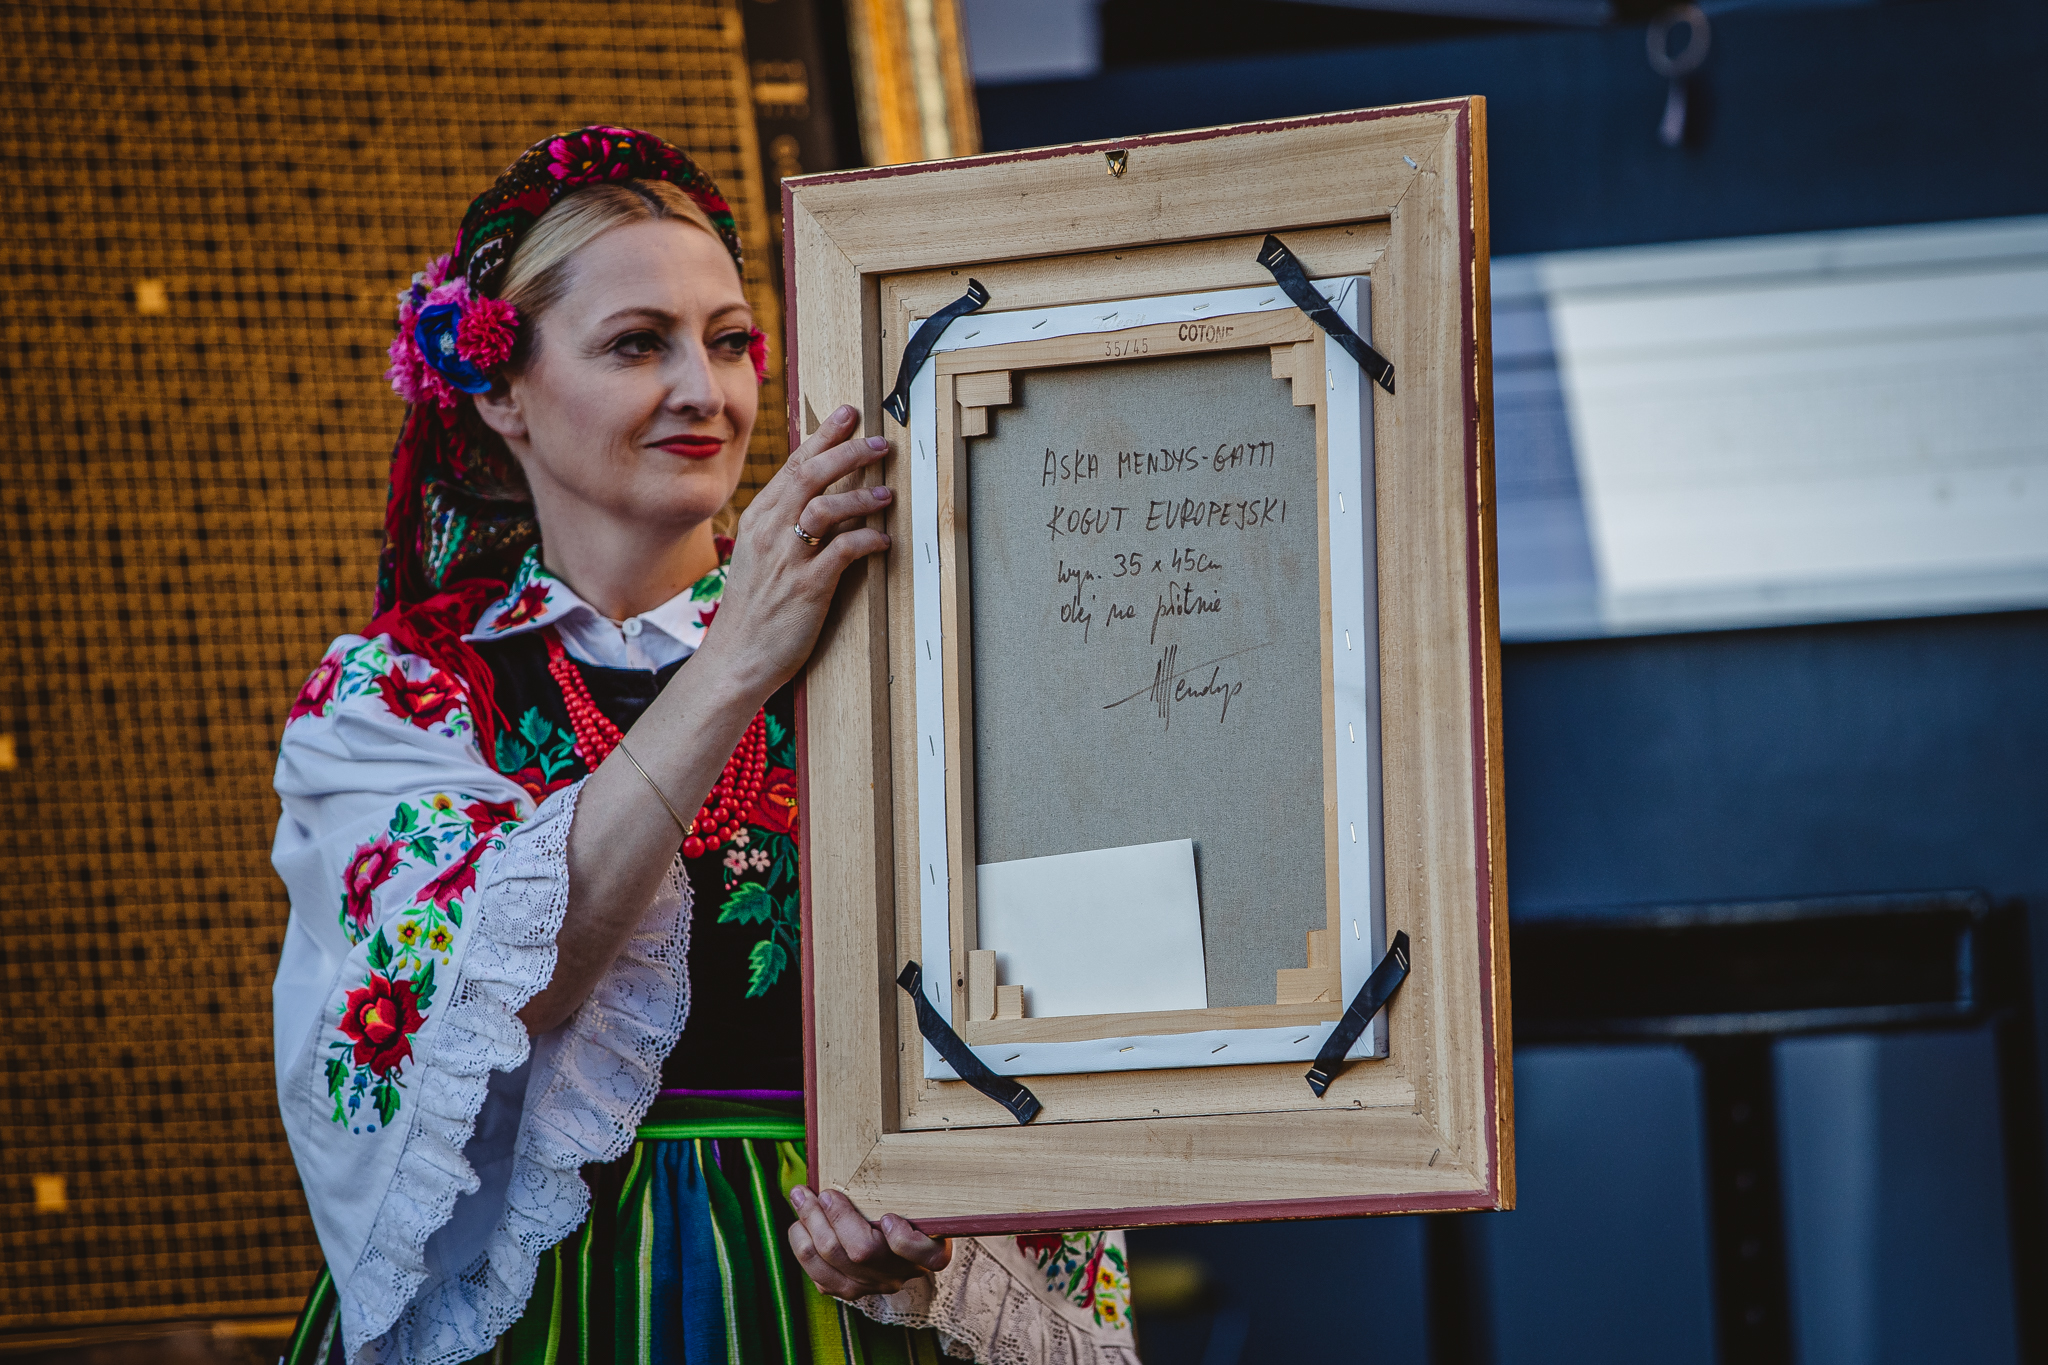 COTONE
35/45
ASKA MENDYS-GATTI
KOGUT EUROPEJSKI
wym. 35 x 45cm
olej na płótnie
Mendys